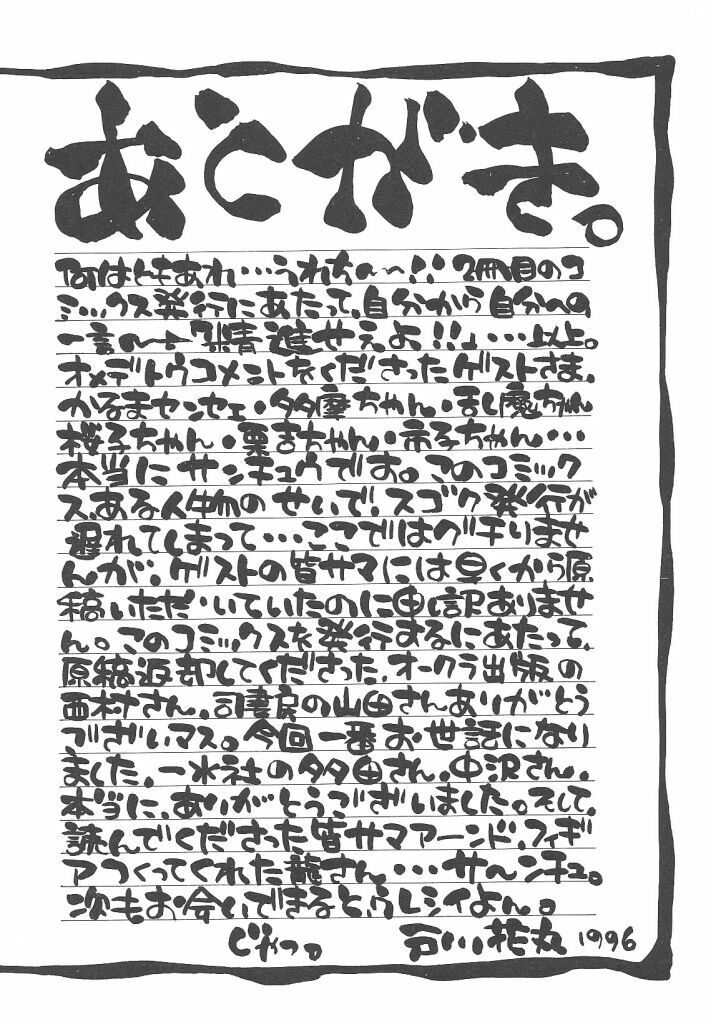 あとがき。
何はともあれ…うれちぃ〜!! 2冊目のコ
ミックス発行にあたって、自分から自分への
一言の〜っ「精進せぇよ!!」…以上。
オメデトウコメントをくださったゲストさま。
かるまセンセェ・多摩ちゃん・乱魔ちゃん
桜子ちゃん・栗吉ちゃん・市子ちゃん…
本当にサンキュウです。このコミック
ス、ある人物のせいで、スゴク発行が
遅れてしまって…ここではグチりませ
んが、ゲストの皆サマには早くから原
稿いただいていたのに申し訳ありませ
ん。このコミックスを発行するにあたって、
原稿返却してくださった、オークラ出版の
西村さん。司書房の山田さんありがとう
でざいマス。今回一番お世話になり
ました、一水社の多田さん。中沢さん。
本当に、ありがとうございました。そして、
読んでくださった皆サマアーンド、フィギ
アつくってくれた龍さん…サ〜ンキュ。
次もお会いできるとうレシイよん。
じゃっ。 石川花丸 1996